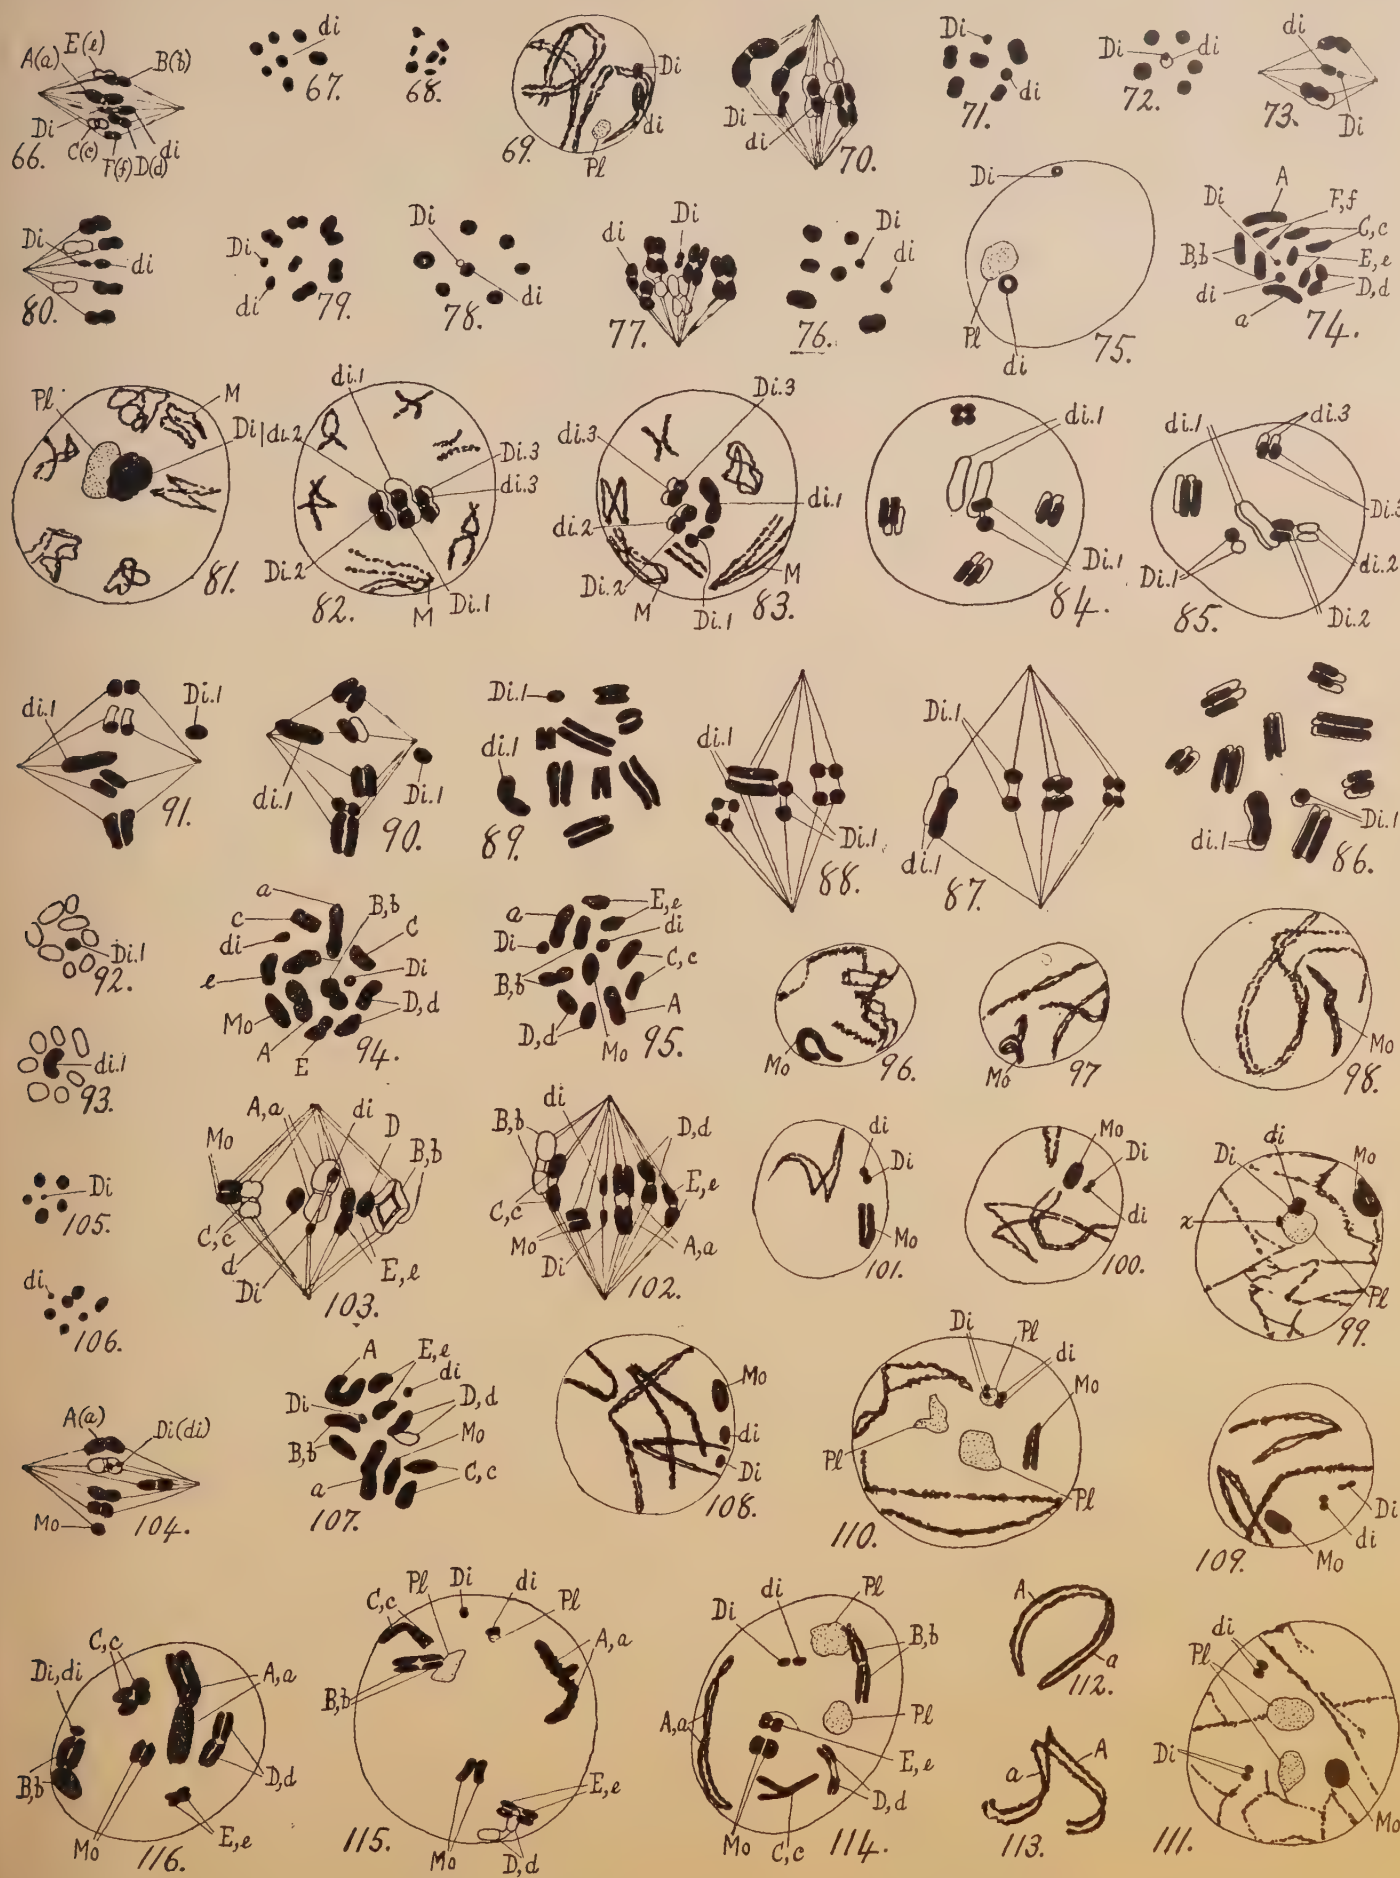 E(e)
A(a)
B(b)
Di
C(c)
F(f) D(d)
di
66.
di
67.
68.
Di
di
Pl
69.
Di
di
70.
Di
di
71.
Di
di
72.
di
Di
73.
Di
di
80.
Di
di
79.
Di
di
78.
di
Di
77.
Di
di
76.
Di
Pl
di
75.
Di
A
F,f
C,c
B,b
E,e
di
D,d
a
74.
Pl
M
Di
81.
di.1
di.2
Di.3
di.3
Di.2
82.
M
Di.1
Di.3
di.3
di.1
di.2
Di.2
M
M
Di.1
83.
di.1
Di.1
84.
di.3
di.1
Di.3
di.2
Di.1
Di.2
85.
di.1
Di.1
91.
di.1
Di.1
90.
Di.1
di.1
89.
di.1
Di.1
88.
Di.1
di.1
87.
Di.1
di.1
86.
Di.1
92.
a
B,b
c
C
di
Di
e
Mo
D,d
A
E
94.
E,e
a
di
Di
C,c
B,b
A
D,d
Mo
95.
Mo
96.
Mo
97
Mo
98.
di.1
93.
Mo
A,a
di
D
B,b
C,c
d
Di
E,e
103.
di
B,b
D,d
C,c
E,e
Mo
Di
A,a
102.
di
Di
Mo
101.
Mo
Di
di
100.
di
Di
Mo
x
Pl
99.
Di
105.
di
106.
A(a)
Di(di)
Mo
104.
A
E,e
di
Di
D,d
B,b
Mo
a
C,c
107.
Mo
di
Di
108.
Di
Pl
di
Mo
Pl
Pl
110.
Di
di
Mo
109.
C,c
Di,di
A,a
B,b
D,d
Mo
E,e
116.
Pl
Di
di
Pl
C,c
A,a
B,b
E,e
Mo
D,d
115.
di
Pl
Di
B,b
A,a
Pl
E,e
D,d
Mo
C,c
114.
A
a
112.
a
A
113.
di
Pl
Di
Mo
111.